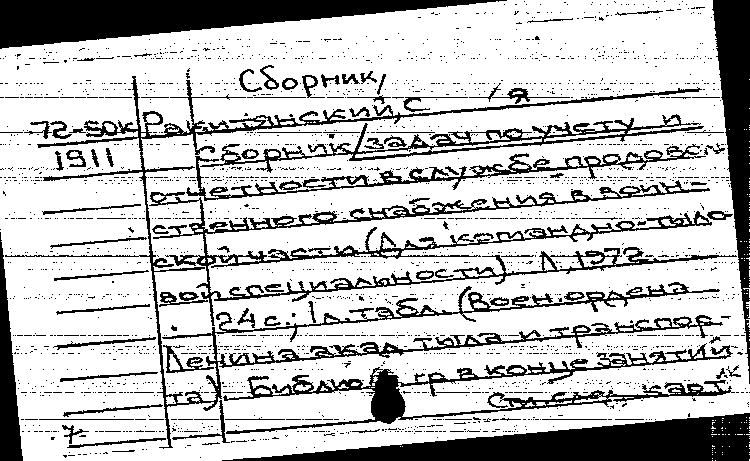 Сборник/
72-50к Ракитянский, С
1911 Сборник/задач по учету и
отчетности в службе продоволь-
ственного снабжения в воин-
ской части (Для командно-тыло-
вой специальности) Л., 1972.
24 с.; 1 л. табл. (Воен. ордена
Ленина акад. тыла и транспор-
та). Библиогр в конце занятий.
См. след. карт.
7